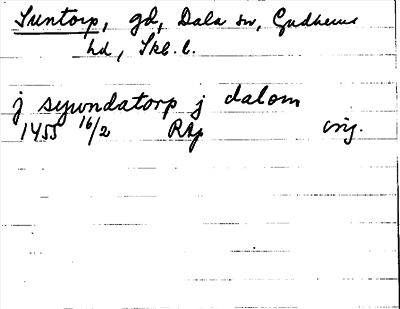 Suntorp, gd, Dala sn, Gudhems
hd, Skb. l.
j sywndatorp j dalom
1455 16/2 RAp orig.